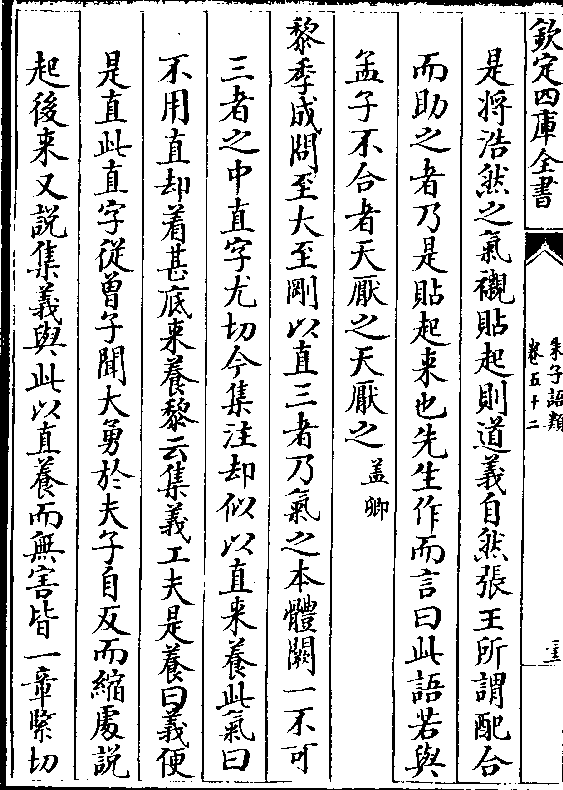 欽定四庫全書
朱子語類
卷五十二
是將浩然之氣襯貼起則道義自然張王所謂配合
而助之者乃是貼起來也先生作而言曰此語若與
孟子不合者天厭之天厭之蓋卿
黎季成問至大至剛以直三者乃氣之本體闕一不可
三者之中直字尤切今集注却似以直来養此氣曰
不用直却着甚底来養黎云集義工夫是養曰義便
是直此直字從曾子聞大勇於夫子自反而縮處說
起後来又說集義與此以直養而無害皆一章緊切